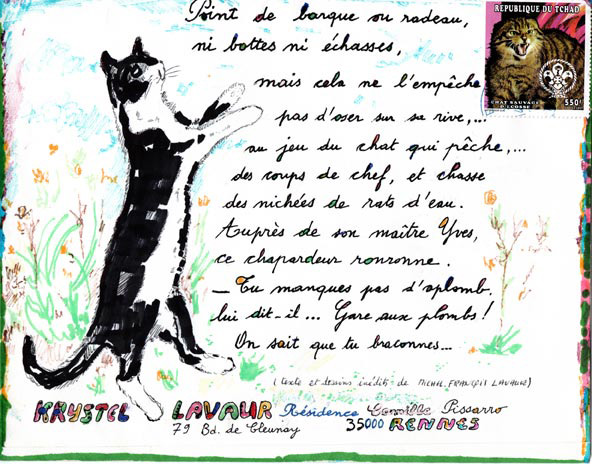 Point de barque ou radeau,
ni bottes ni échasses,
mais cela ne l'empêche
pas d'oser sur sa rive,...
au jeu du chat qui pêche,...
des coups de chef, et chasse
des nichées de rats d'eau.
Auprès de son maître Yves,
ce chapardeur ronronne.
– Tu manques pas d'aplomb,
lui dit-il... Gare aux plombs!
On sait que tu braconnes...
(texte et dessins inédits de MICHEL-FRANÇOIS LAVAUR)
KRYSTEL LAVAUR Résidence Camille Pissarro
79 Bd. de Cleunay 35000 RENNES
REPUBLIQUE DU TCHAD
CHAT SAUVAGE
D'ECOSSE
550F